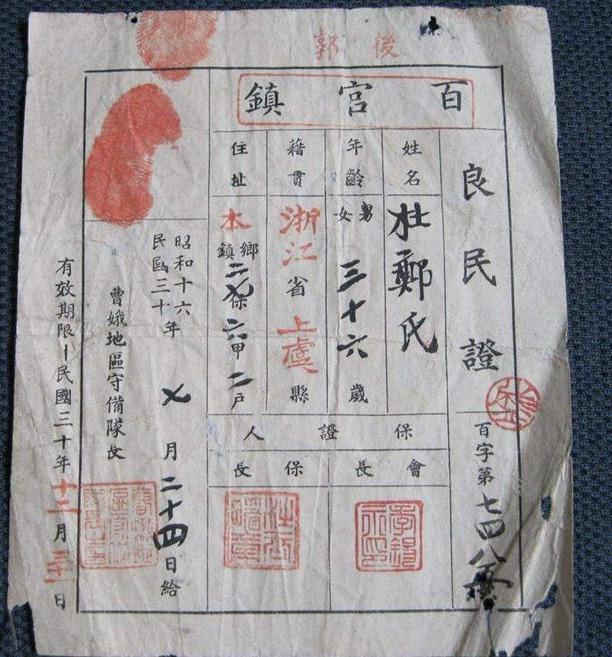 後郭
百官鎮
良民證
百字第七四八
姓名
杜鄭氏
年齡
男女 三十六歲
籍貫
浙江省上虞縣
住址
本鄉鎮 二七保六甲二戶
保證人
會長
保長
昭和十六
民國三十年 七月二十四日給
曹娥地區守備隊長
有效期限–民國三十年十二月三十一日